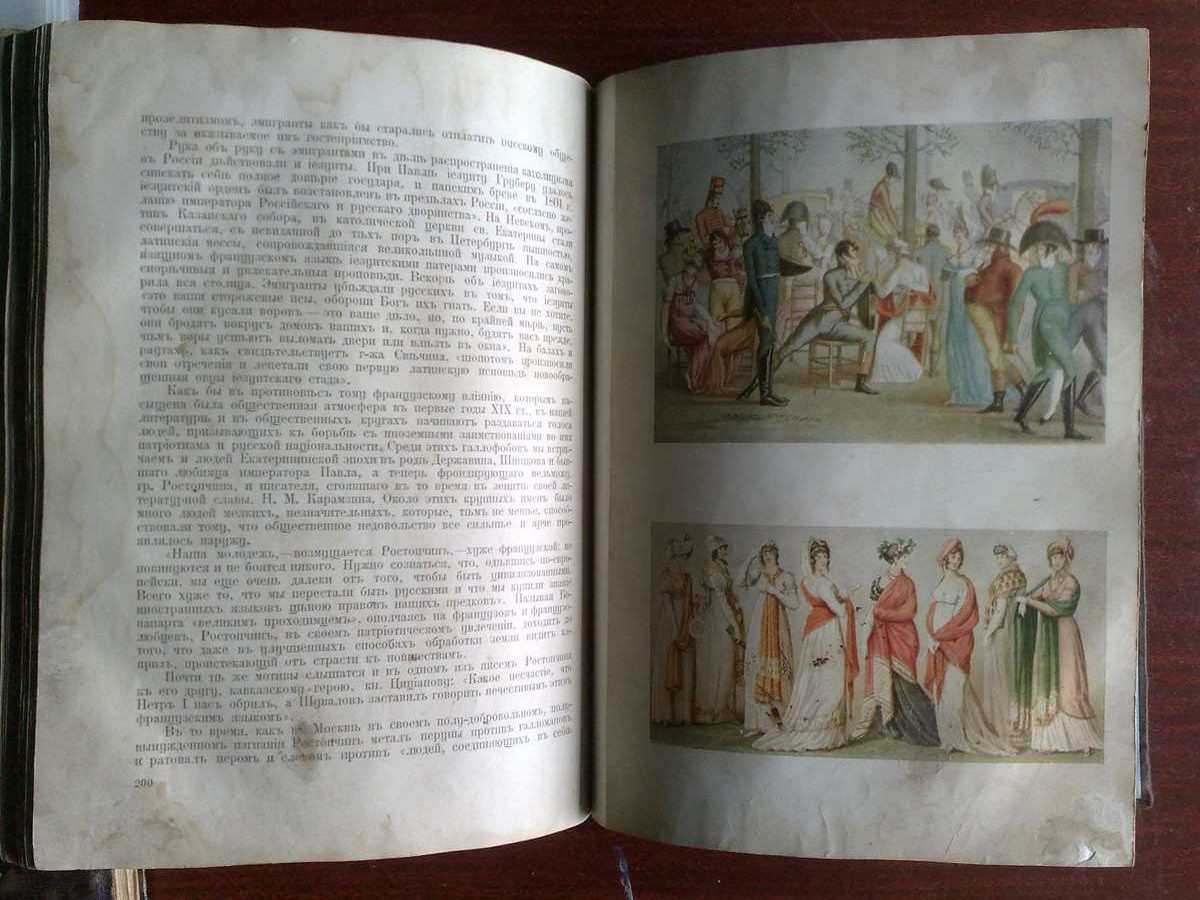 прозелитизмомъ, эмигранты какъ бы старались отплатить русскому обще-
ству за оказываемое имъ гостепріимство.
Рука объ руку съ эмигрантами въ дѣлѣ распространенія католицизма
въ Россіи дѣйствовали и іезуиты. При Павлѣ іезуиту Груберу удалось
снискать себѣ полное довѣріе государя, и папскимъ бреве въ 1801 г.
іезуитскій орденъ былъ возстановленъ въ предѣлахъ Россіи, «согласно же-
ланію императора Россійскаго и русскаго дворянства». На Невскомъ, про-
тивъ Казанскаго собора, въ католической церкви св. Екатерины стали
совершаться, съ невиданной до тѣхъ поръ въ Петербургѣ пышностью,
латинскія мессы, сопровождавшіяся великолѣпной музыкой. На самомъ
изящномъ французскомъ языкѣ іезуитскими патерами произносились кра-
снорѣчивыя и увлекательныя проповѣди. Вскорѣ объ іезуитахъ загово-
рила вся столица. Эмигранты убѣждали русскихъ въ томъ, что іезуиты
«это ваши сторожевые псы, оборони Богъ ихъ гнать. Если вы не хотите,
чтобы они кусали воровъ — это ваше дѣло, но, по крайней мѣрѣ, пусть
они бродятъ вокругъ домовъ вашихъ и, когда нужно, будятъ васъ прежде,
чѣмъ воры успѣютъ выломать двери или влѣзть въ окна». На балахъ и
раутахъ, какъ свидѣтельствуетъ г-жа Свѣчина, «шопотомъ произносили
свои отреченія и лепетали свою первую латинскую исповѣдь новообра-
щенныя овцы іезуитскаго стада».
Какъ бы въ противовѣсъ тому французскому вліянію, которымъ на-
сыщена была общественная атмосфера въ первые годы XIX ст., въ нашей
литературѣ и въ общественныхъ кругахъ начинаютъ раздаваться голоса
людей, призывающихъ къ борьбѣ съ иноземными заимствованіями во имя
патріотизма и русской національности. Среди этихъ галлофобовъ мы встрѣ-
чаемъ и людей Екатерининской эпохи въ родѣ Державина, Шишкова и быв-
шаго любимца императора Павла, а теперь фрондирующаго вельможу,
гр. Ростопчина, и писателя, стоявшаго въ то время въ зенитѣ своей ли-
тературной славы, Н. М. Карамзина. Около этихъ крупныхъ именъ было
много людей мелкихъ, незначительныхъ, которые, тѣмъ не менѣе, способ-
ствовали тому, что общественное недовольство все сильнѣе и ярче про-
являлось наружу.
«Наша молодежь,—возмущается Ростопчинъ,—хуже французской: не
повинуются и не боятся никого. Нужно сознаться, что, одѣвшись по-евро-
пейски, мы еще очень далеки отъ того, чтобы быть цивилизованными.
Всего хуже то, что мы перестали быть русскими и что мы купили знаніе
иностранныхъ языковъ цѣною нравовъ нашихъ предковъ». Называя Бо-
напарта «великимъ проходимцемъ», ополчаясь на французовъ и французо-
любцевъ, Ростопчинъ, въ своемъ патріотическомъ увлеченіи, доходитъ до
того, что даже въ улучшенныхъ способахъ обработки земли видитъ ка-
призъ, проистекающій отъ страсти къ новшествамъ.
Почти тѣ же мотивы слышатся и въ одномъ изъ писемъ Ростопчина
къ его другу, кавказскому «герою, кн. Циціанову: «Какое несчастіе, что
Петръ I насъ обрилъ, а Шуваловъ заставилъ говорить нечестивымъ этимъ
французскимъ языкомъ».
Въ то время, какъ въ Москвѣ въ своемъ полу-добровольномъ, полу-
вынужденномъ изгнаніи Ростопчинъ металъ перуны противъ галломановъ
и ратовалъ перомъ и словомъ противъ «людей, соединяющихъ въ себѣ
200